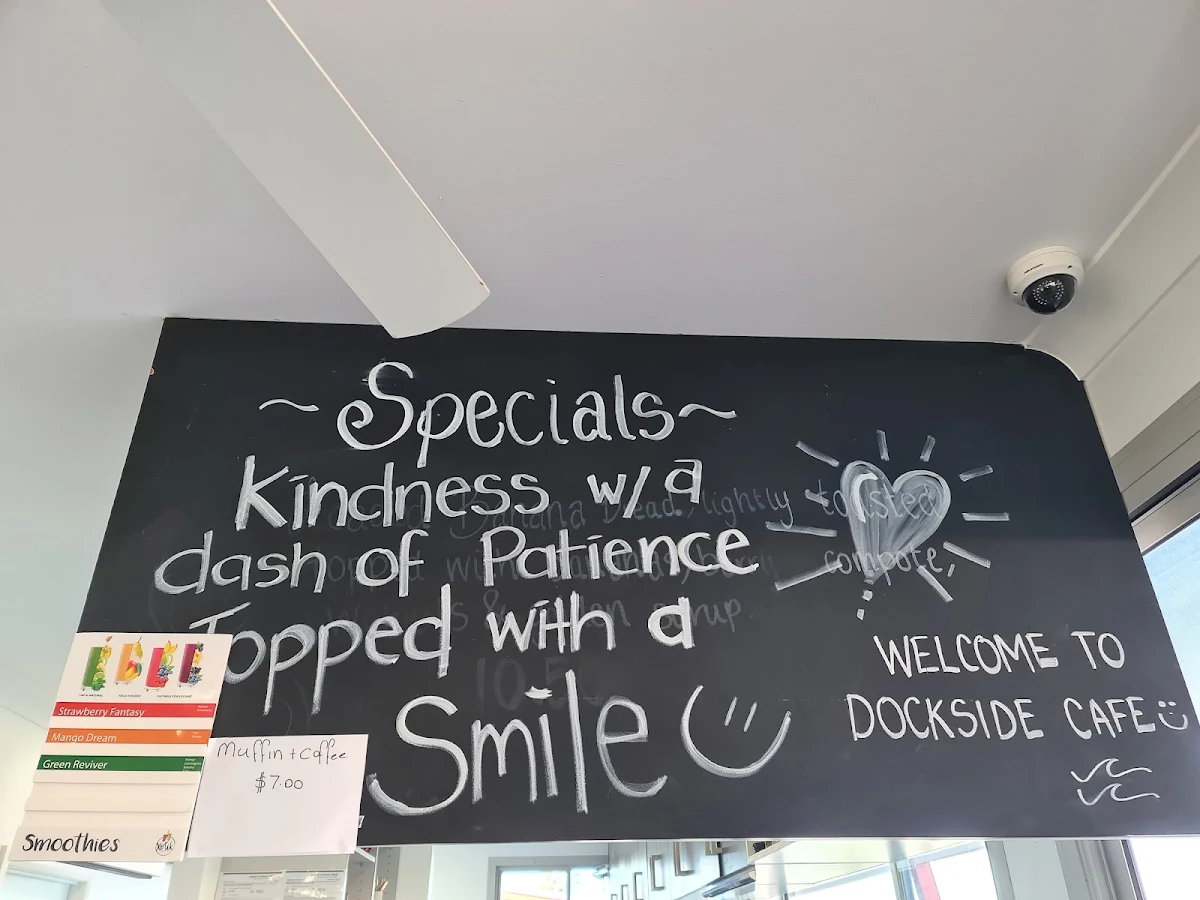 ~Specials~
Kindness w/a
dash of Patience
Topped with a
Smile
Banana bread, lightly toasted
compote,
syrup.
10.5
WELCOME TO
DOCKSIDE CAFE
Strawberry Fantasy
Mango Dream
Green Reviver
Smoothies
Muffin + Coffee
$7.00